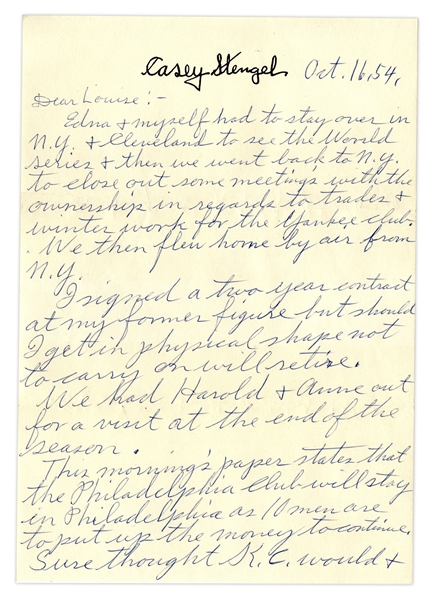 Casey Stengel Oct. 16, 54,
Dear Louise:-
Edna & myself had to stay over in
N.Y. & Cleveland to see the World
Series & then we went back to N.Y.
to close out some meetings with the
ownership in regards to trades &
winter work for the Yankee club.
We then flew home by air from
N.Y.
I signed a two year contract
at my former figure but should
I get in physical shape not
to carry on will retire.
We had Harold & Anne out
for a visit at the end of the
season.
This morning's paper states that
the Philadelphia Club will stay
in Philadelphia as 10 men are
to put up the money to continue.
Sure thought K.C. would &